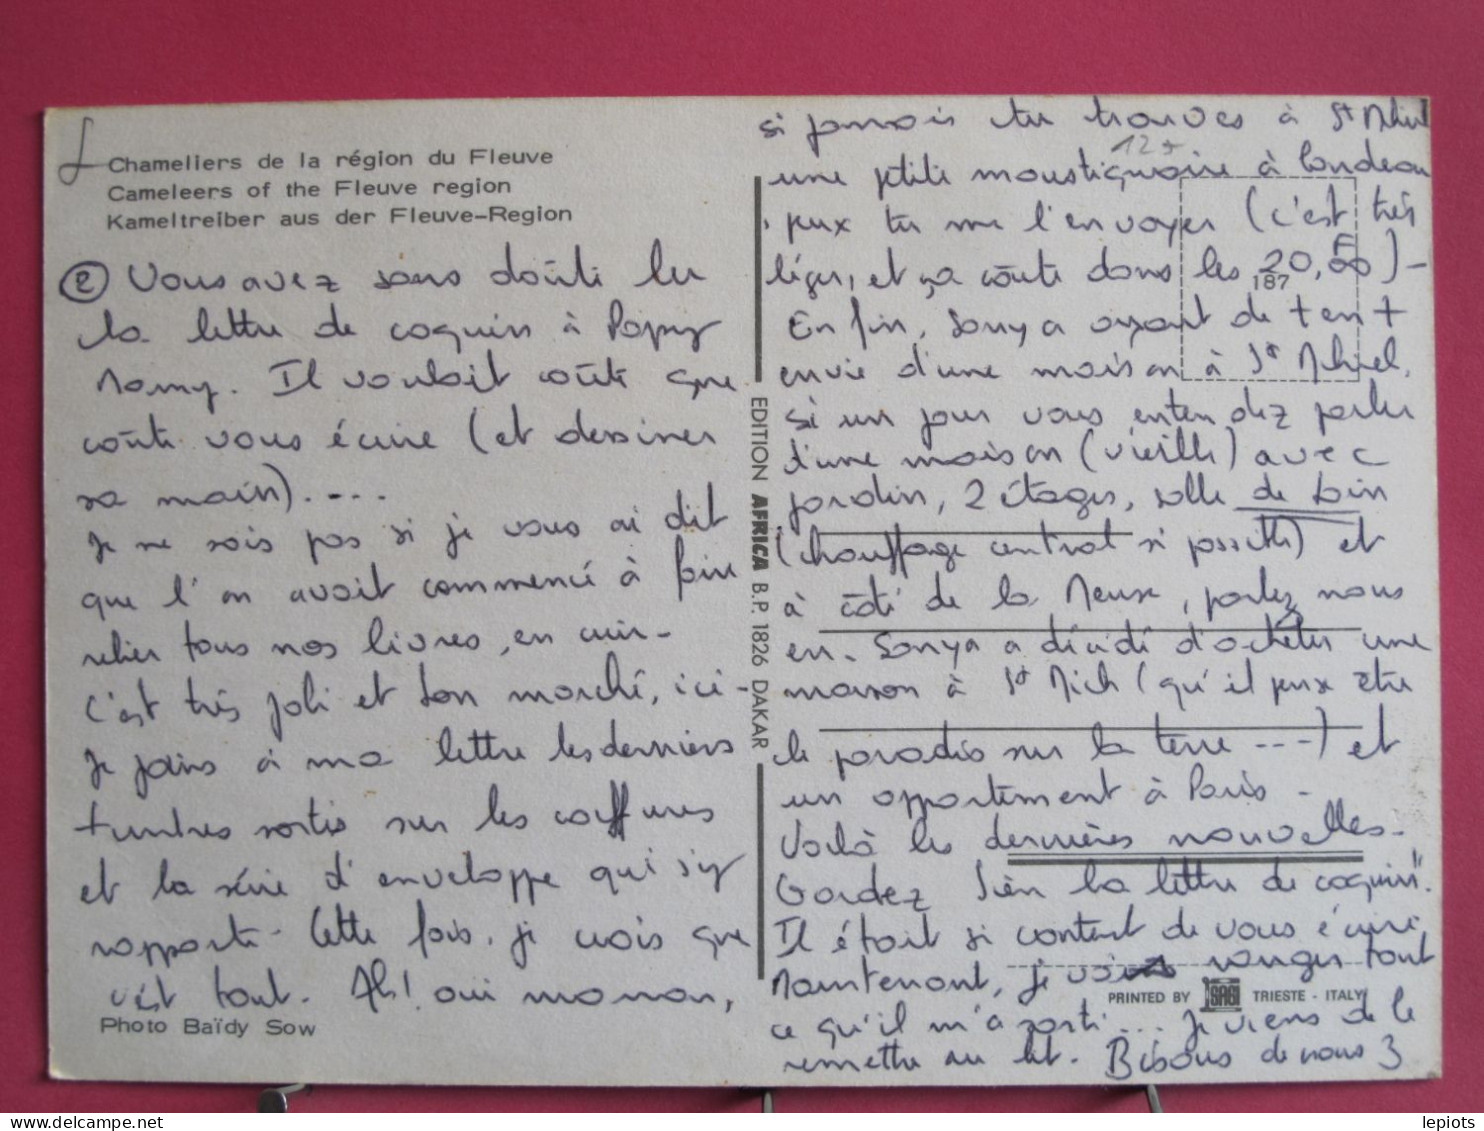 Chameliers de la région du Fleuve
Cameleers of the Fleuve region
Kameltreiber aus der Fleuve-Region
② Vous avez sans doute lu
la lettre de coquin à Papy
Mamy. Il voulait coûte que
coûte vous écrire (et dessiner
sa main)....
Je ne sais pas si je vous ai dit
que l'on avait commencé à faire
relier tous nos livres, en cuir-
c'est très joli et bon marché, ici-
Je joins à ma lettre les derniers
timbres sortis sur les coiffures
et la série d'enveloppe qui s'y
rapporte- Cette fois, je crois que
c'est tout. Ah! oui maman,
Photo Baïdy Sow
EDITION AFRICA B.P. 1826 DAKAR
si jamais tu trouves à St Mihiel
12
une ptite moustiquaire à landeau
peux tu me l'envoyer (c'est très
léger, et ça coûte dans les 20,00 F)-
187
Enfin, Sonya ayant de + en +
envie d'une maison à St Mihiel,
si un jour vous entendez parler
d'une maison (vieille) avec
jardin, 2 étages, salle de bain
(chauffage central si possible) et
à côté de la Meuse, parlez nous
en. Sonya a décidé d'acheter une
maison à St Mich (qu'il peux être
le paradis sur la terre ----) et
un appartement à Paris -
Voilà les dernières nouvelles-
Gardez bien la lettre de coquin".
Il était si content de vous écrire
Maintenant, je vais ranger tout
PRINTED BY SAGI TRIESTE - ITALY
ce qu'il m'a sorti ... Je viens de le
remettre au lit. Bisous de nous 3
lepiots
www.delcampe.net